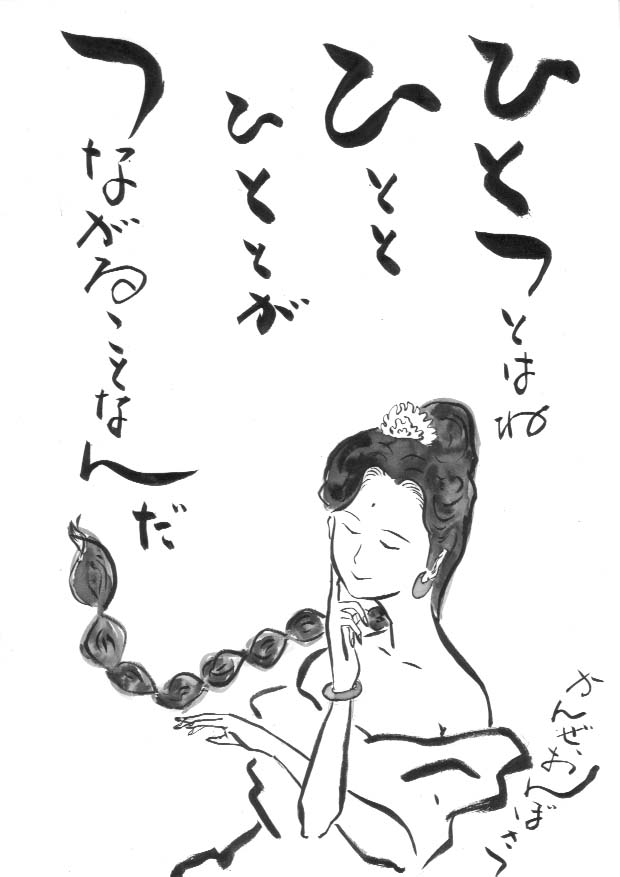 ひとつとはね
ひとと
ひととが
つながることなんだ
かんぜおんぼさつ